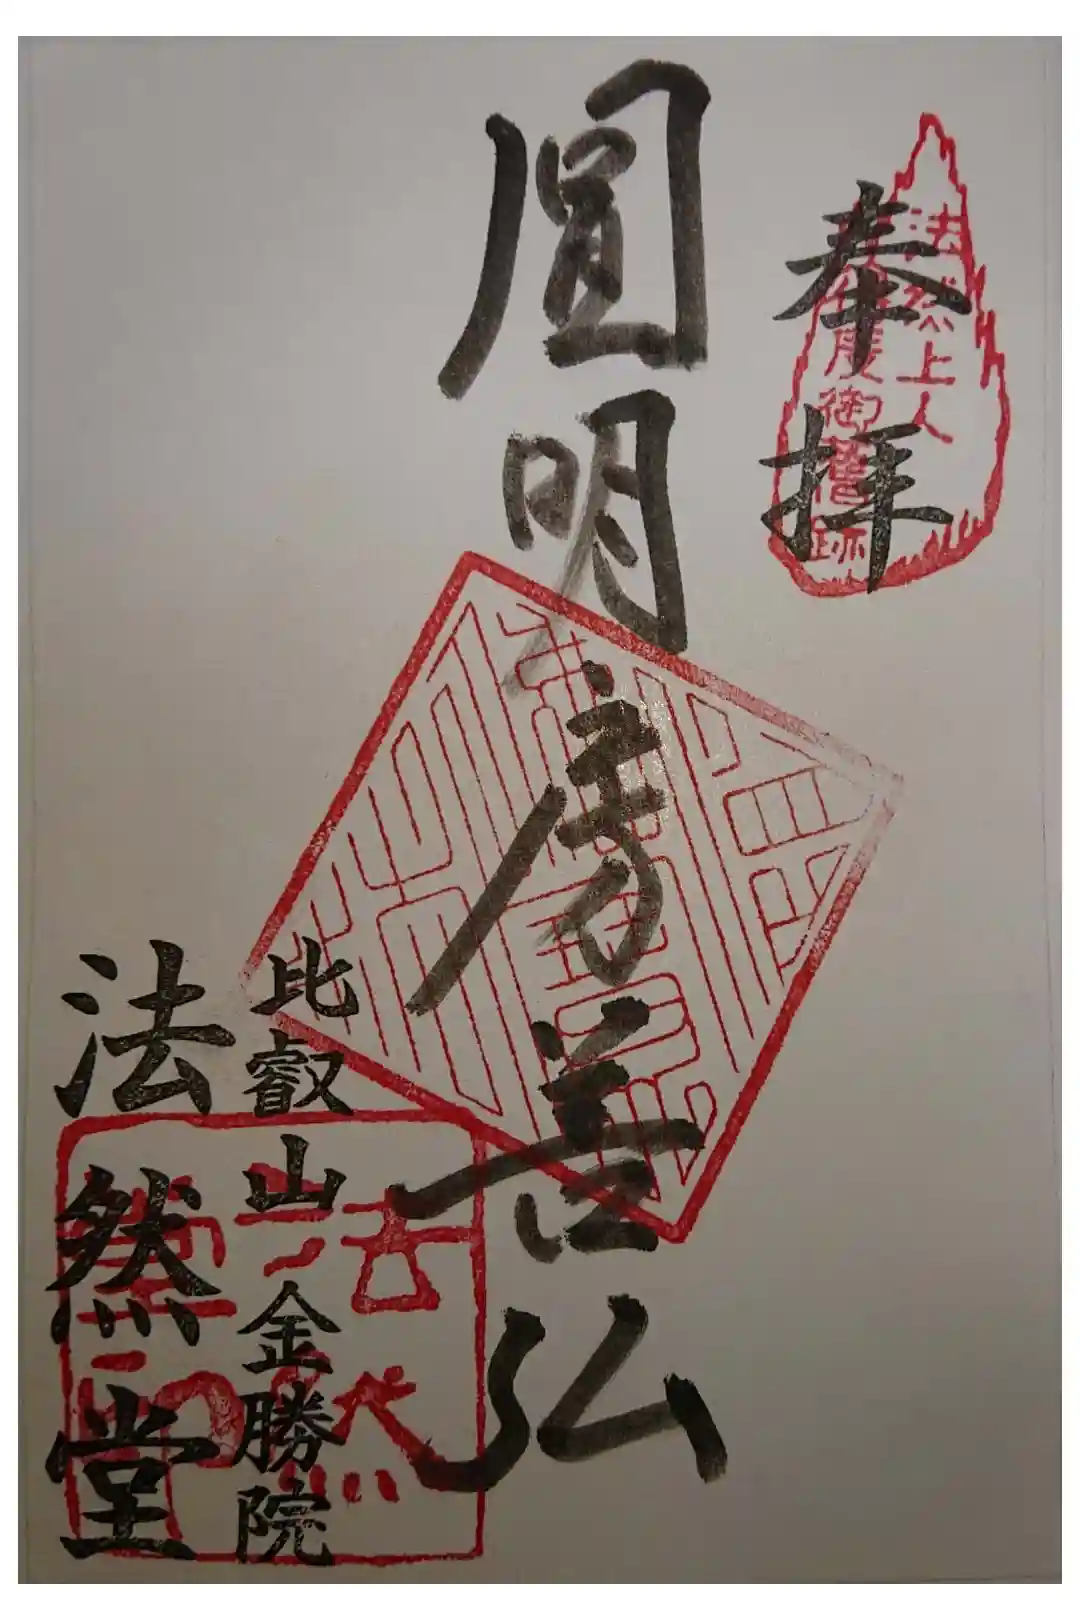 奉拝
法然上人
得度御舊跡
圓明房善弘
比叡山 金勝院
法然堂
法然堂印